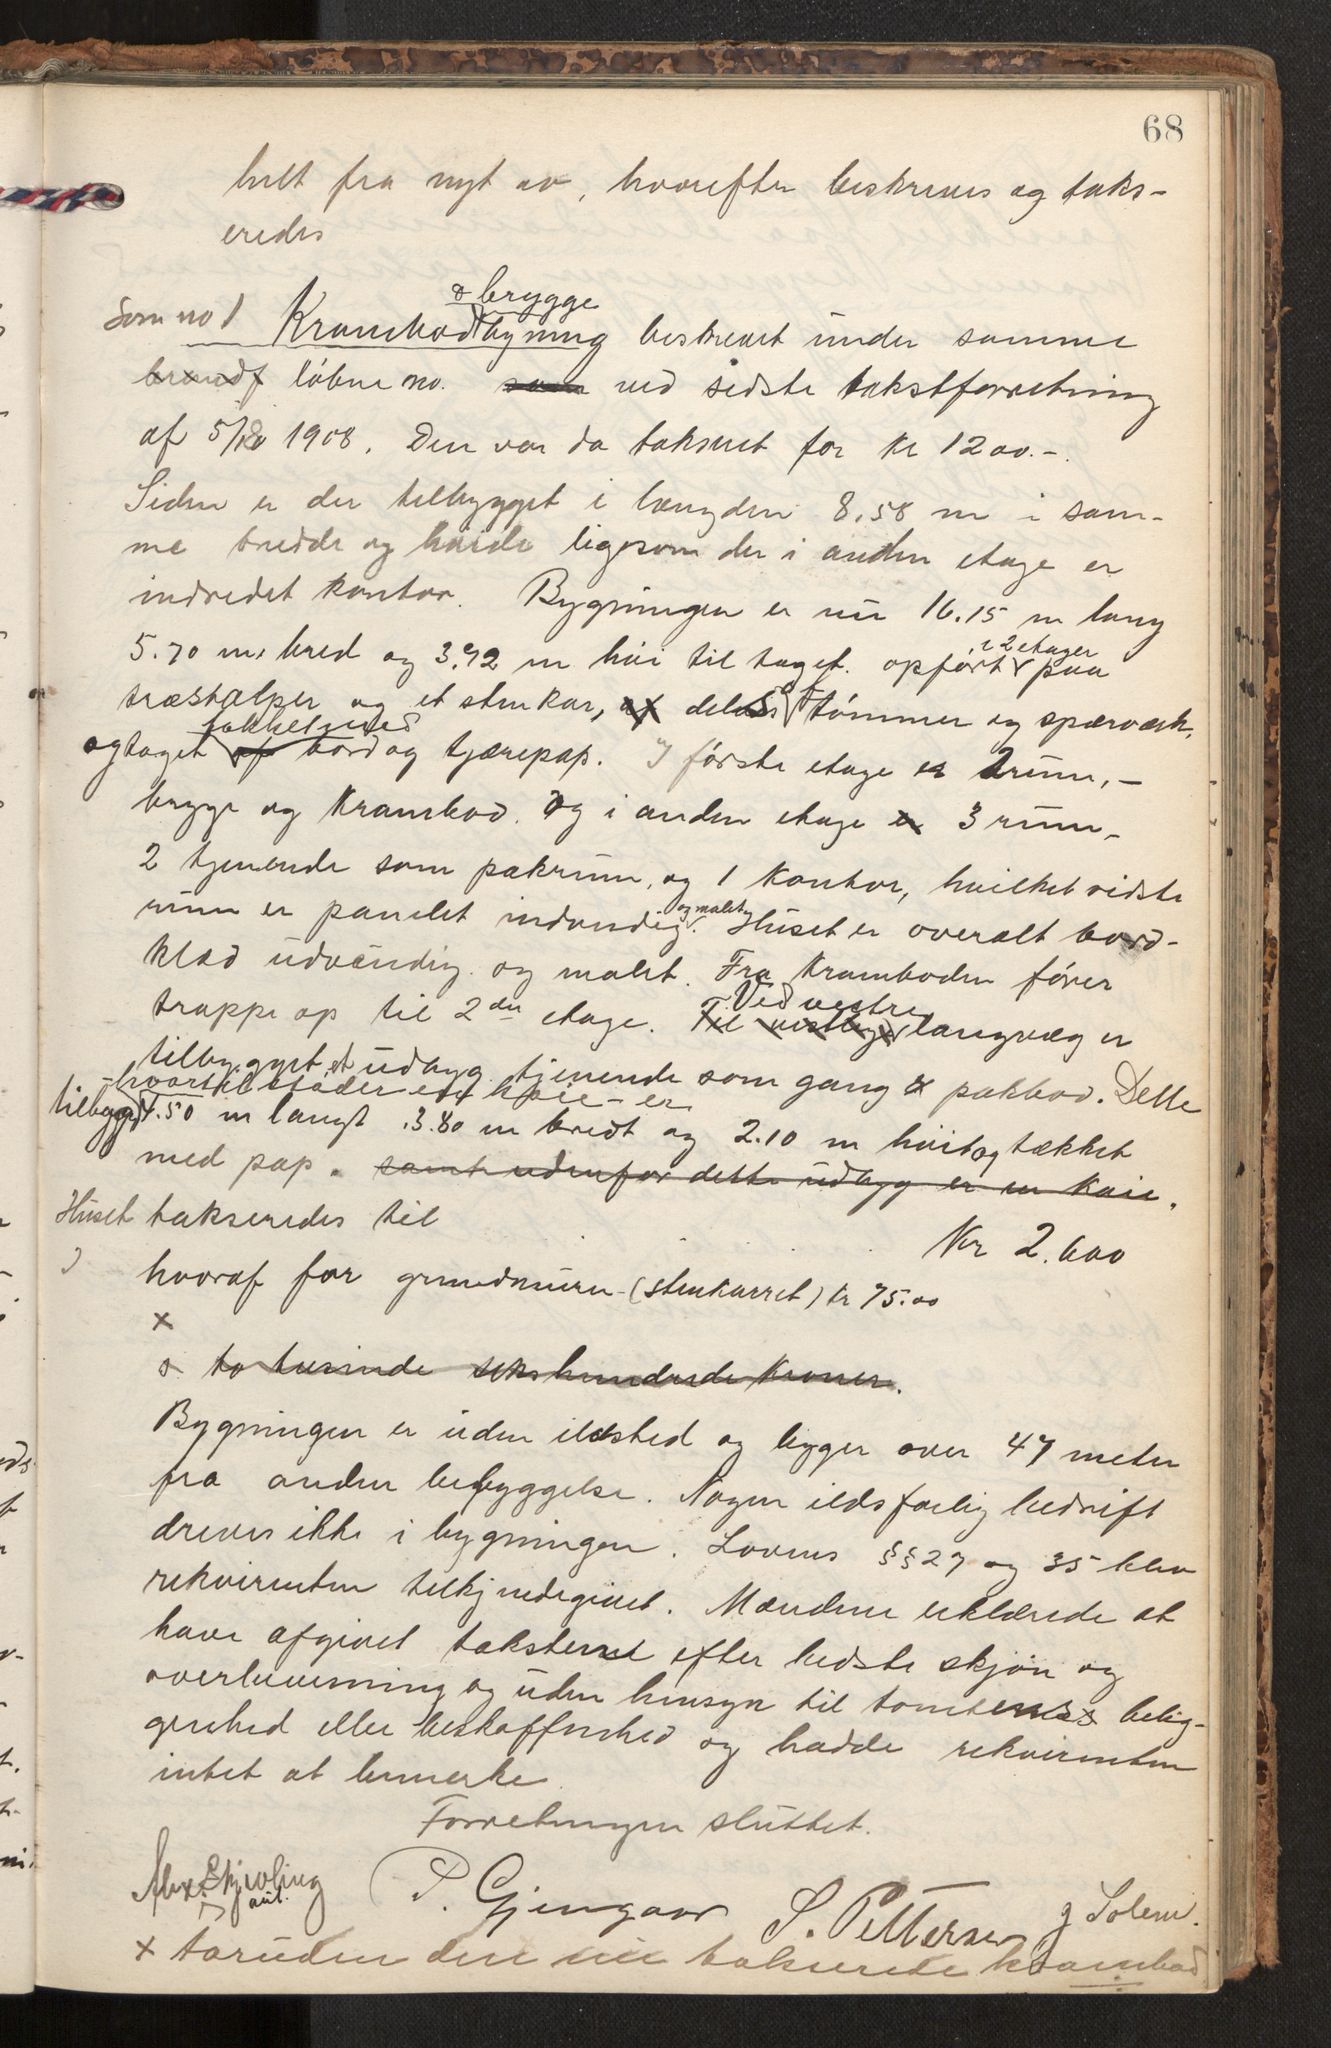 68
helt fra nyt av, hvorefter beskreves og taks-
eredes
& brygge
Som no 1 Krambodbygning beskrevet under samme
brandf løbne no. som ved sidste takstforretning
af 5/10 1908. Den var da takseret for kr 1200.-.
Siden er der tilbygget i længden 8,58 m i sam-
me bredde og høide ligesom der i anden etage er
indredet kontor. Bygningen er nu 16.15 m lang
i 2 etager
5.70 m. bred og 3.92 m høi til taget. opført paa
træstolper og et stenkar, af delvis af tømmer og spærværk,
takket med
og taget af bord og tjærepap. I første etage er 2 rum, -
brygge og Krambod. Og i anden etage er 3 rum, -
2 tjenende som pakrum, og 1 Kontor, hvilket sidste
og malet
rum er panelet indvendig. Huset er overalt bord-
klæd udvendig og malet. Fra Kramboden fører
Ved vestre
trappe op til 2den etage. Til vestlige langvæg er
tilbygget et udbyg tjenende som gang & pakbod. Dette
- hvortil støder en kaie - er
tilbygg 4.50 m langt 3.80 m bredt og 2.10 m høit og tækket
med pap. samt udenfor dette udbyg er en kaie.
Huset takseredes til
Kr 2.600
hvoraf for grundmuren (stenkarret) kr 75.00
x
σ to tusinde sekshundrede Kroner.
Bygningen er uden ildsted og ligger over 47 meter
fra anden bebyggelse. Nogen ildsfarlig bedrift
drives ikke i bygningen. Lovens §§ 27 og 35 blev
rekvirenten tilkjendegivet. Mændene erklærede at
have afgivet taksten efter bedste skjøn og
overbevisning og uden hensyn til tomtens belig-
genhed eller beskaffenhed og hadde rekvirenten
intet at bemerke.
Forretningen sluttet.
Alex Skjevling P. Gjengaar S. Pettersen J Solem.
aut.
x foruden den nu takserede krambod